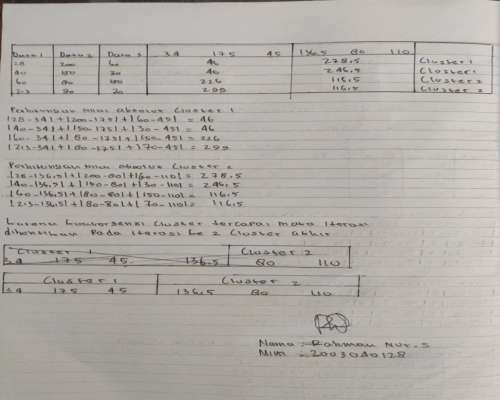 Data 1 Data 2 Data 3 34 175 45 136.5 80 110
28 200 60 46 278.5 Cluster 1
40 150 30 46 246.5 Cluster 1
60 80 150 226 116.5 Cluster 2
213 80 70 299 116.5 Cluster 2
Perhitungan nilai absolut Cluster 1
|28-34|+|200-175|+|60-45| = 46
|40-34|+|150-175|+|30-45| = 46
|60-34|+|80-175|+|150-45| = 226
|213-34|+|80-175|+|70-45| = 299
Perhitungan nilai absolut Cluster 2
|28-136.5|+|200-80|+|60-110| = 278.5
|40-136.5|+|150-80|+|30-110| = 246.5
|60-136.5|+|80-80|+|150-110| = 116.5
|213-136.5|+|80-80|+|70-110| = 116.5
karena konvergensi Cluster tercapai maka iterasi
dihentikan Pada iterasi ke 2 Cluster akhir
Cluster 1 Cluster 2
34 175 45 136.5 80 110
Cluster 1 Cluster 2
34 175 45 136.5 80 110
Nama : Rahman Nur. S
Nim : 2003040128